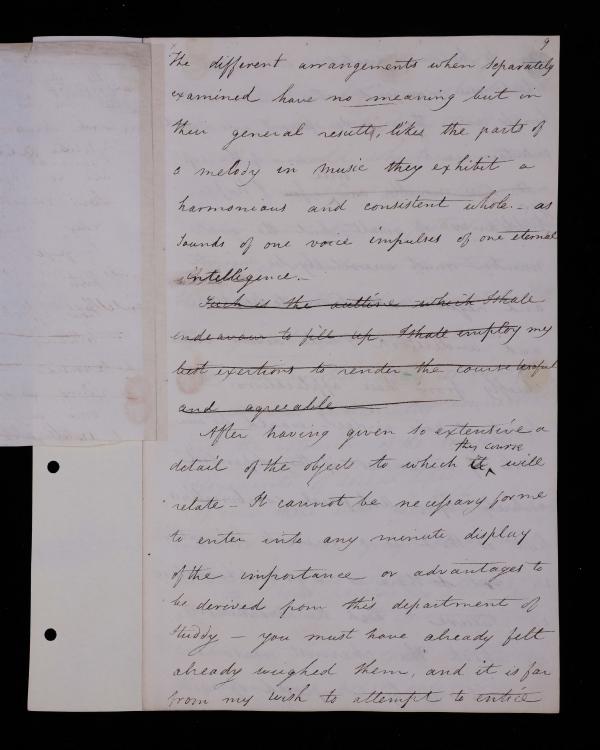 9
the different arrangements when separately
examined have no meaning but in
their general results, likes the parts of
a melody in music they exhibit a
harmonious and consistent whole. - as
sounds of one voice impulses of one eternal
intelligence. -
Such is the outline which I shall
endeavour to fill up I shall employ my
best exertions to render the course useful
and agreeable
After having given so extensive a
this course
detail of the objects to which it will
relate - It cannot be necessary for me
to enter into any minute display
of the importance or advantages to
be derived from this department of
studdy - you must have already felt
already weighed them, and it is far
from my wish to attempt to entice